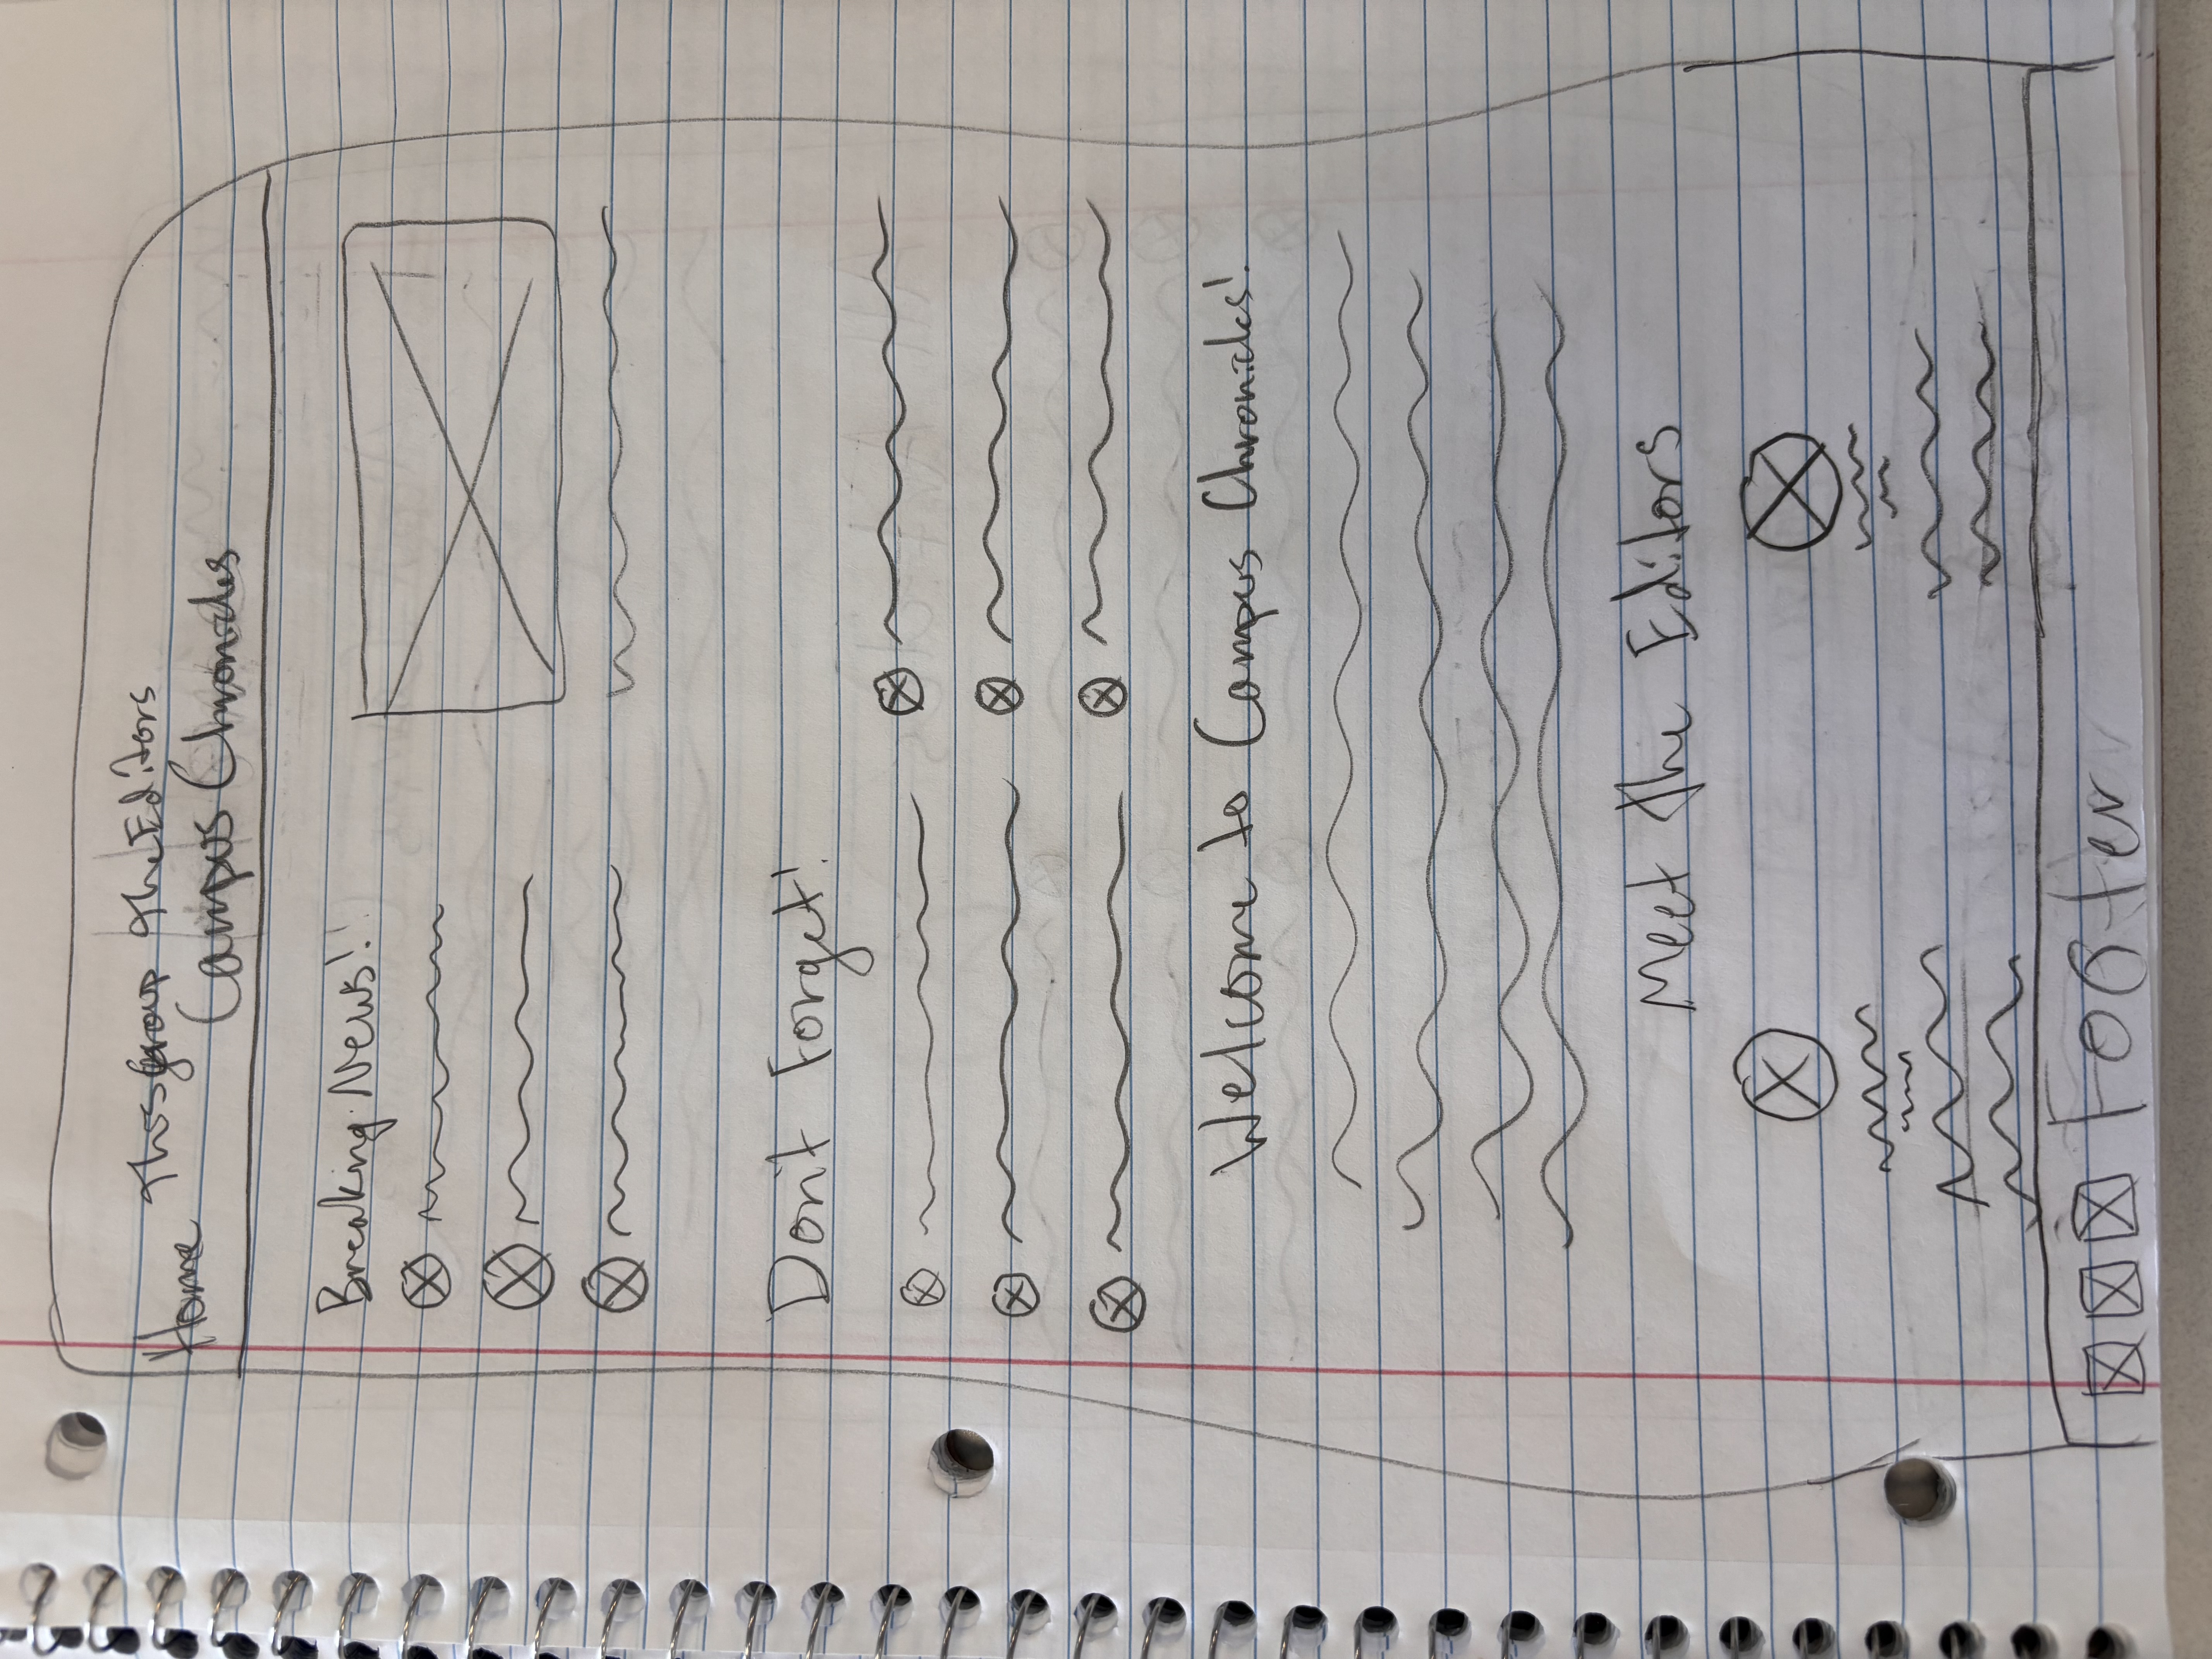 Home This group The Editors
Campus Chronicles
Breaking News!
Don't Forget!
Welcome to Campus Chronicles!
Meet The Editors
Footer